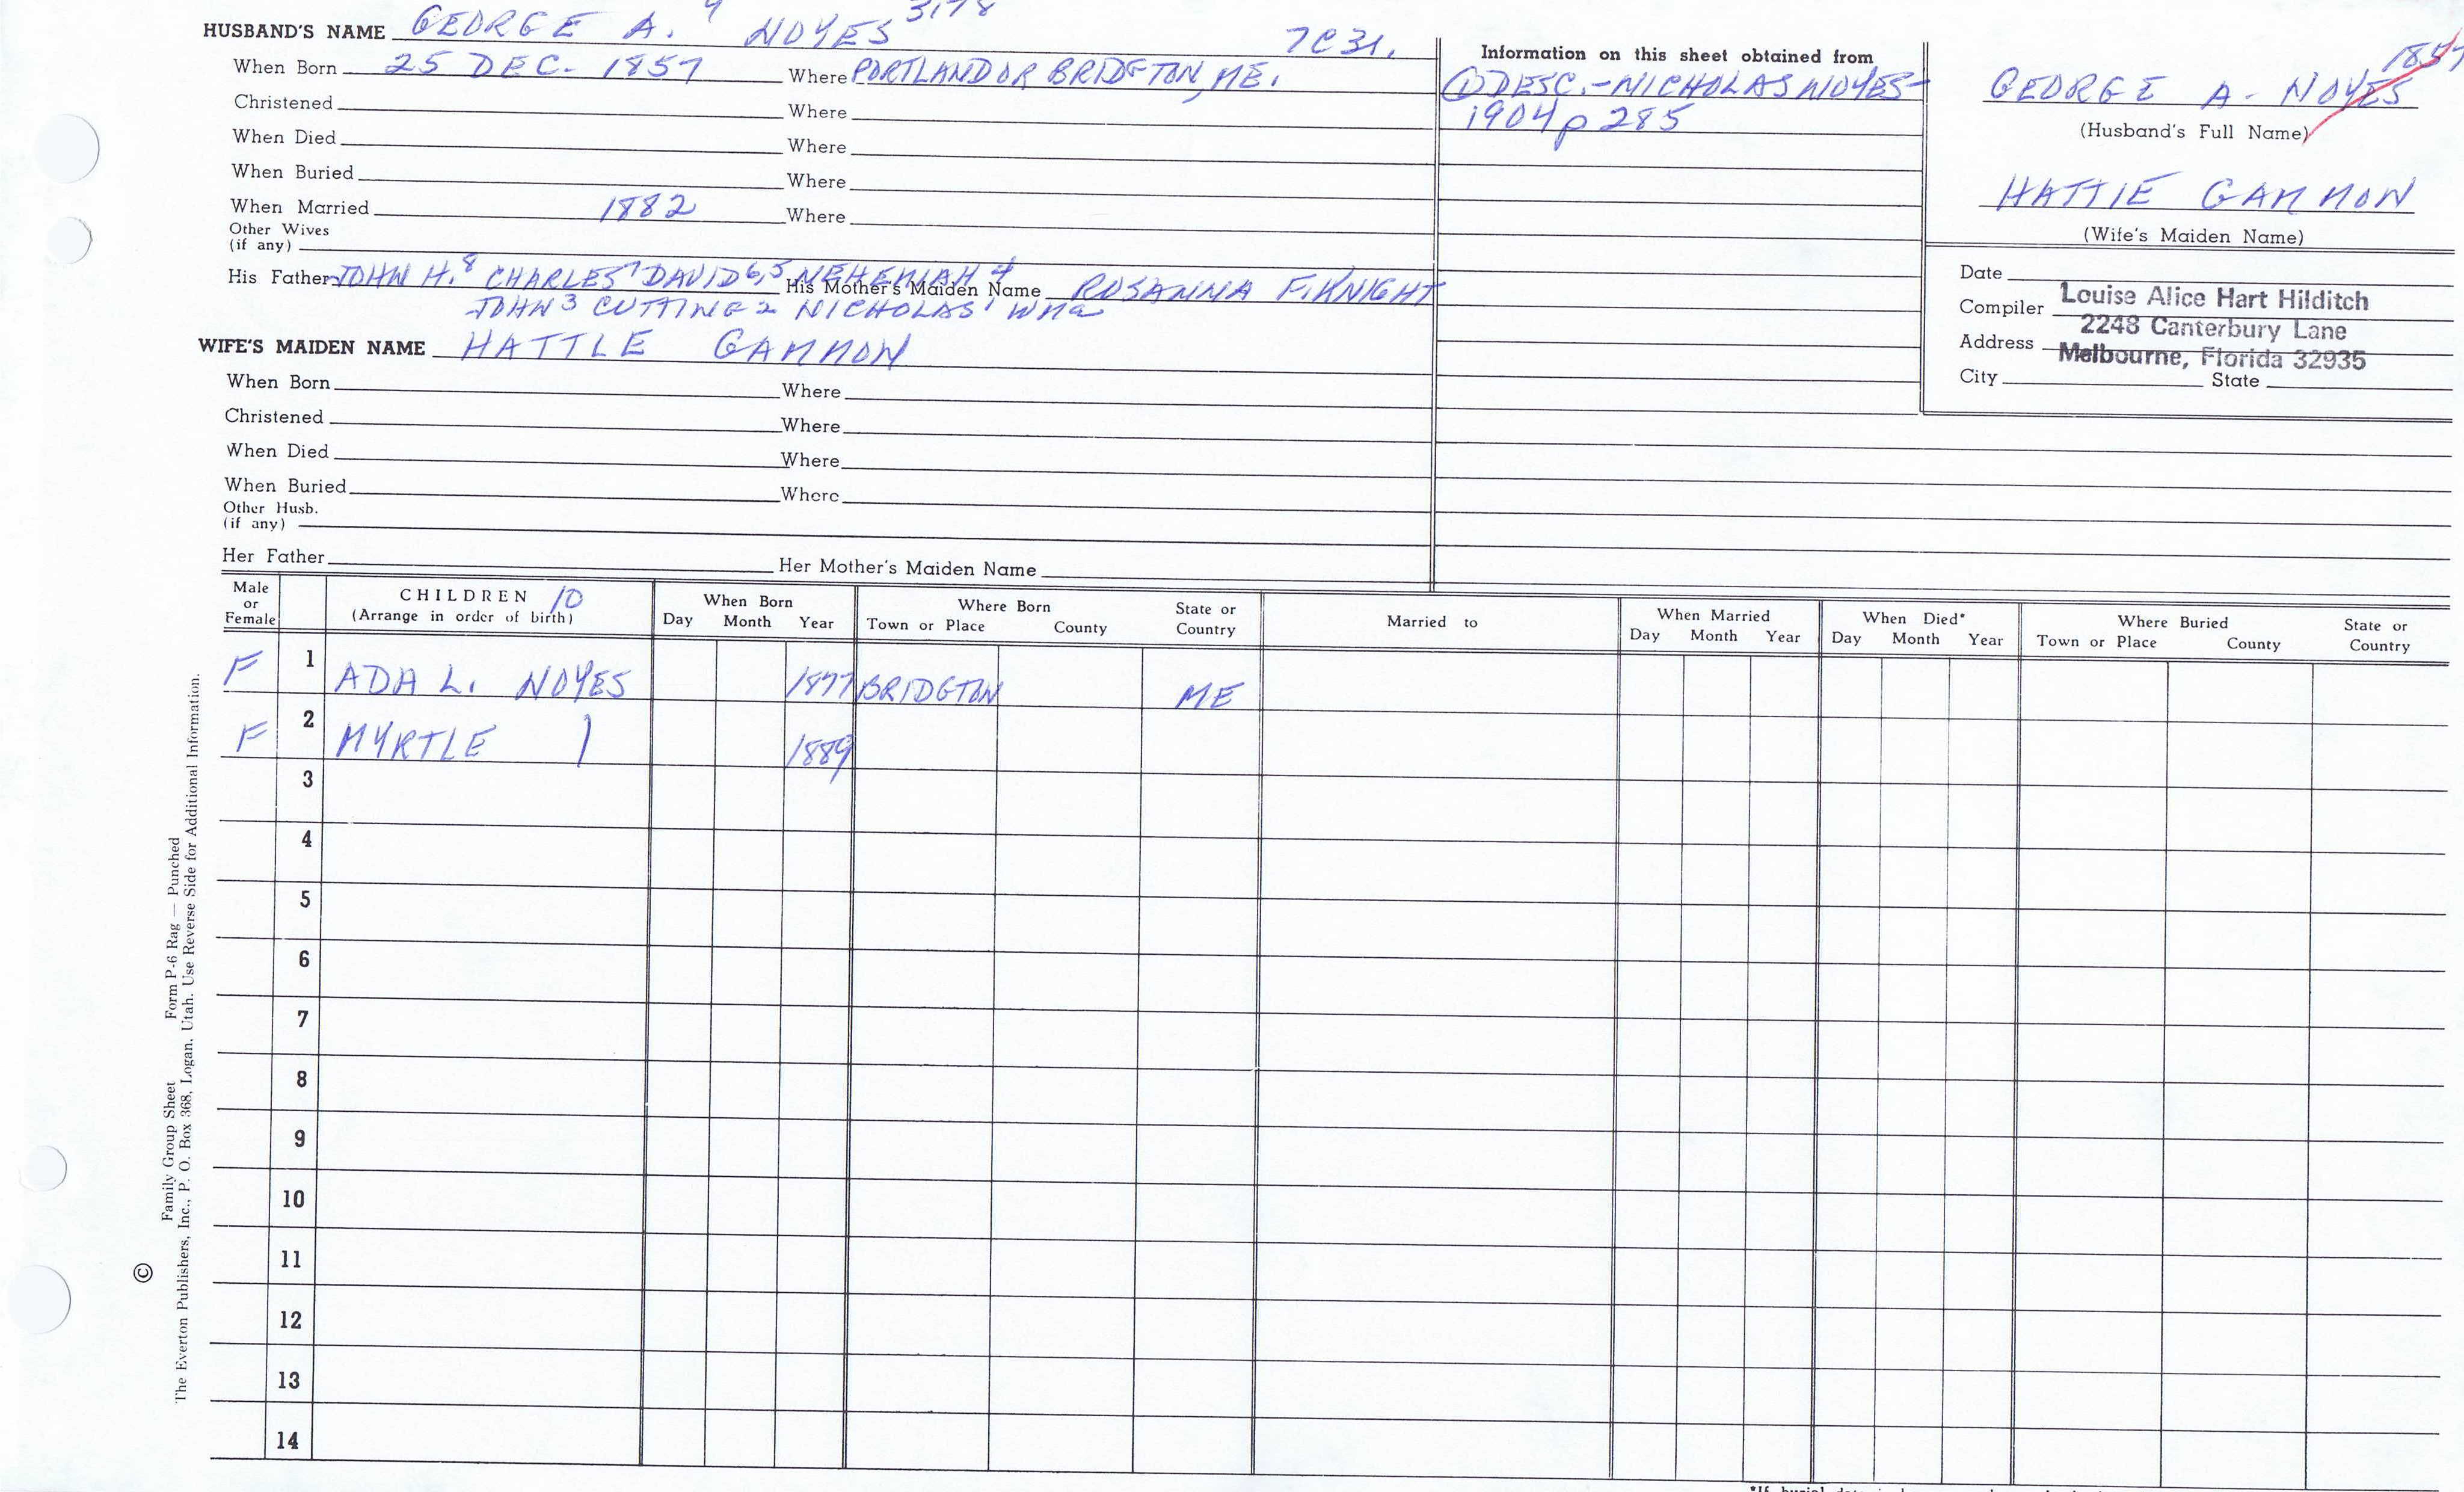 HUSBAND'S NAME GEORGE A. 9 NOYES 3178 7C31.
When Born 25 DEC. 1857 Where PORTLAND OR BRIDGTON, ME.
Christened Where
When Died Where
When Buried Where
When Married 1882 Where
Other Wives
(if any)
His Father JOHN H.8 CHARLES7 DAVID6,5 NEHEMIAH4 His Mother's Maiden Name ROSANNA F. KNIGHT
JOHN3 CUTTING2 NICHOLAS1 Wma
WIFE'S MAIDEN NAME HATTLE GAMMON
When Born Where
Christened Where
When Died Where
When Buried Where
Other Husb.
(if any)
Her Father Her Mother's Maiden Name
Information on this sheet obtained from
① DESC.-NICHOLAS NOYES-
1904 p 285
1857
GEORGE A. NOYES
(Husband's Full Name)
HATTIE GAMMON
(Wife's Maiden Name)
Date
Compiler Louise Alice Hart Hilditch
Address 2248 Canterbury Lane
Melbourne, Florida 32935
City State
Male or Female
CHILDREN 10
(Arrange in order of birth)
When Born
Day Month Year
Where Born
Town or Place County State or Country
Married to
When Married
Day Month Year
When Died*
Day Month Year
Where Buried
Town or Place County State or Country
F 1 ADA L. NOYES 1877 BRIDGTON ME
F 2 MYRTLE ) 1889
3
4
5
6
7
8
9
10
11
12
13
14
Family Group Sheet Form P-6 Rag — Punched
© The Everton Publishers, Inc., P. O. Box 368, Logan, Utah. Use Reverse Side for Additional Information.